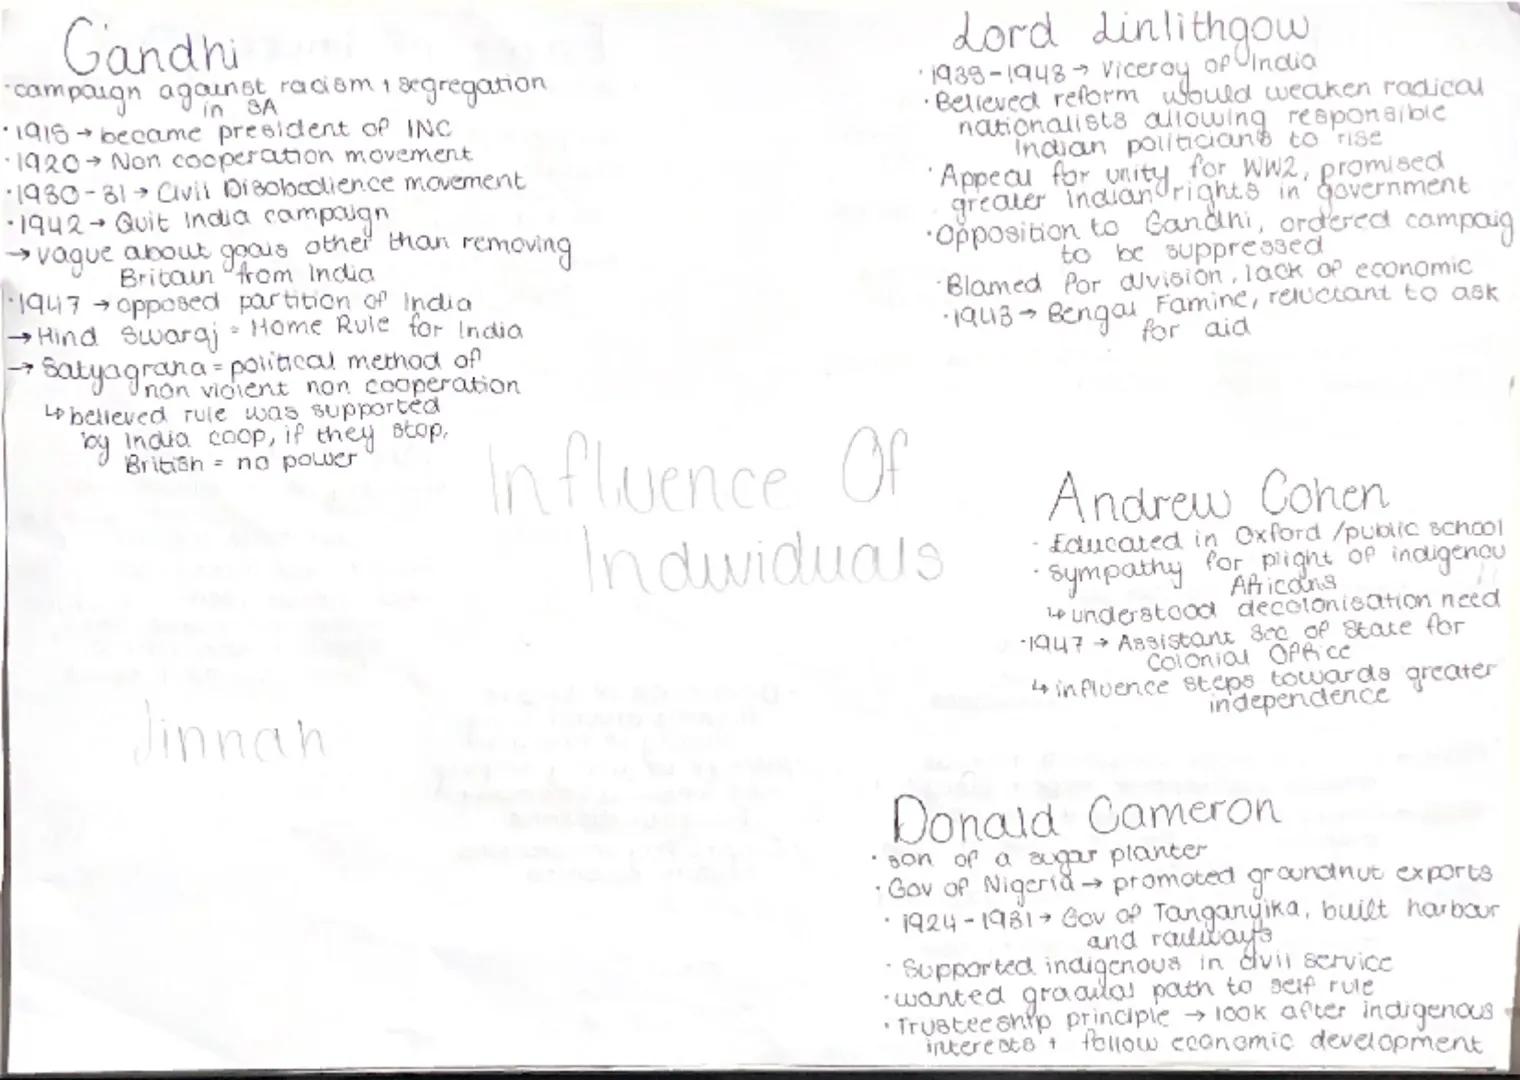 Gandhi
·campaign against racism + segregation
in SA
·1915 → became president of INC
·1920 → Non cooperation movement
·1930-31 → Civil Disobedience movement
·1942 → Quit India campaign
→ vague about goals other than removing
Britain from India
·1947 → opposed partition of India
→ Hind Swaraj = Home Rule for India
→ Satyagraha = political method of
non violent non cooperation
↳ believed rule was supported
by India coop, if they stop,
British = no power
Influence Of
Individuals
Jinnah
Lord Linlithgow
·1938-1948 → Viceroy of India
·Believed reform would weaken radical
nationalists allowing responsible
Indian politicians to rise
·Appeal for unity for WW2, promised
greater Indian rights in government
·Opposition to Gandhi, ordered campaig
to be suppressed
·Blamed for division, lack of economic
·1943 → Bengal Famine, reluctant to ask
for aid
Andrew Cohen
· Educated in Oxford /public school
· Sympathy for plight of indigenou
Africans
↳ understood decolonisation need
·1947 → Assistant Sec of State for
Colonial Office
↳ influence steps towards greater
independence
Donald Cameron
· son of a sugar planter
· Gov of Nigeria → promoted groundnut exports
· 1924-1931 → Gov of Tanganyika, built harbour
and railways
· Supported indigenous in civil service
· wanted gradual path to self rule
· Trusteeship principle → look after indigenous
interests + follow economic development